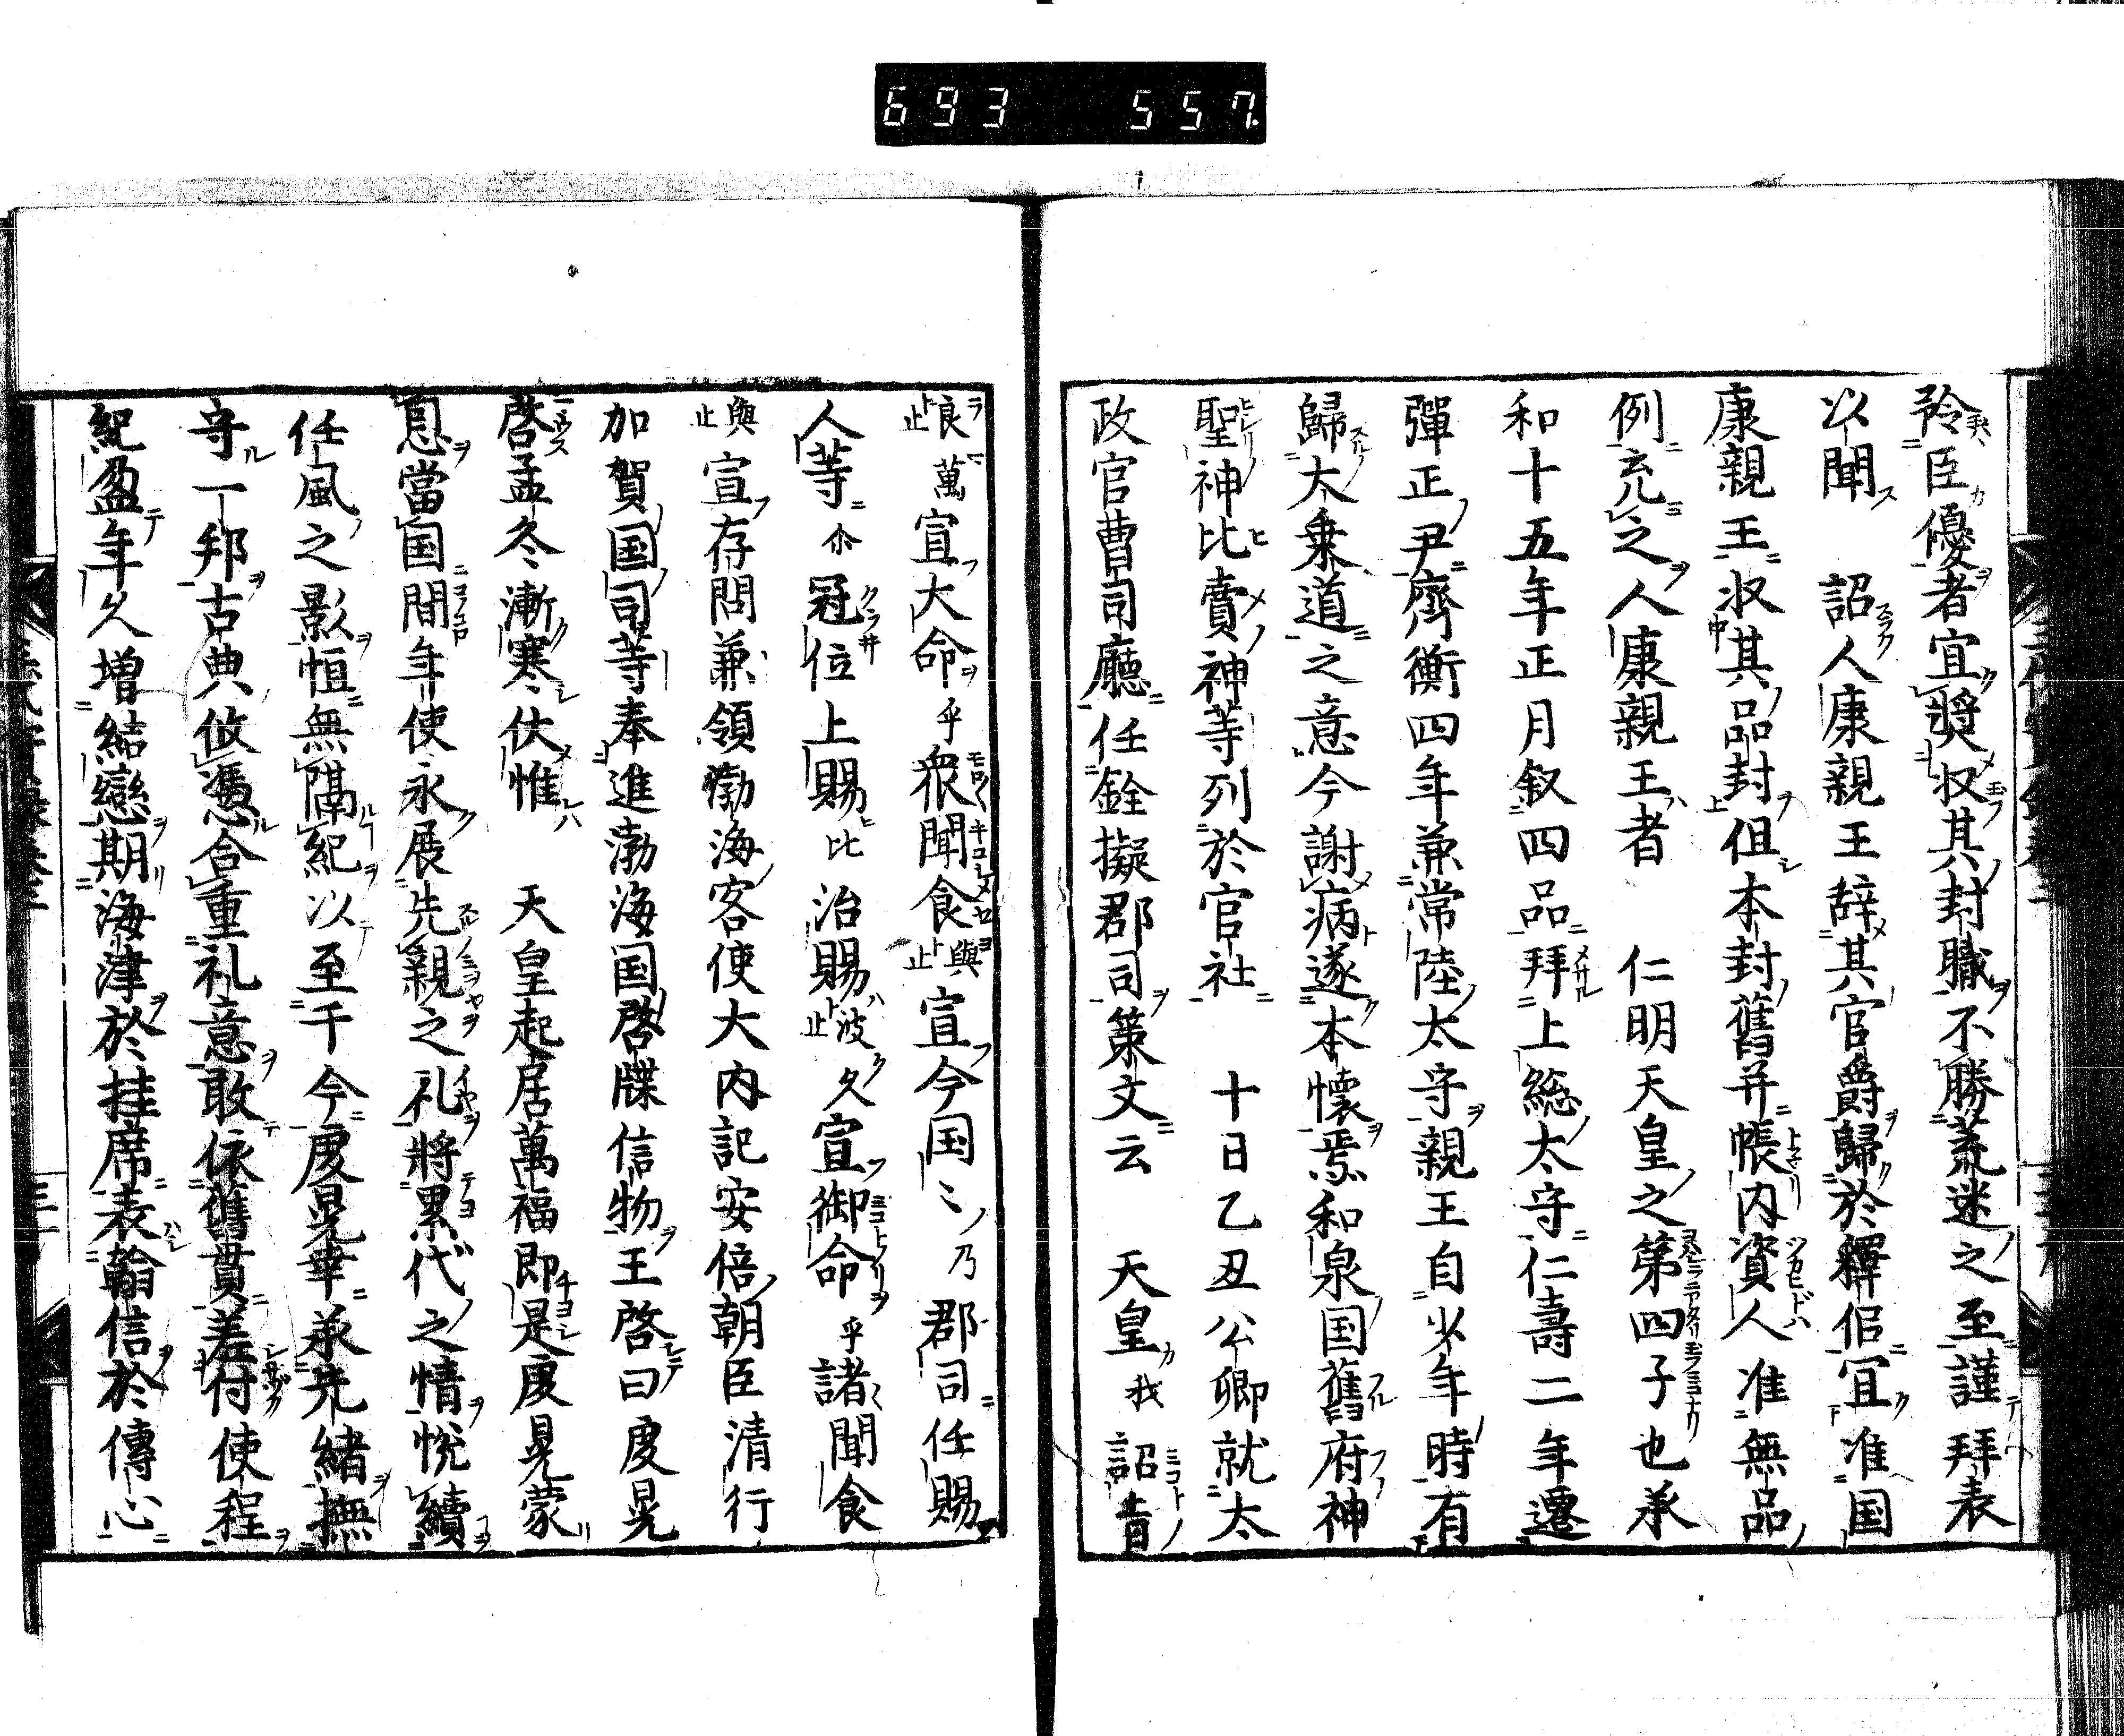 693 557
矜臣優者宜奬収其封職不勝荒迷之至謹拜表
以聞 詔人康親王辞其官爵歸於釋侶宜准国
康親王収其品封但本封舊并帳内資人准無品
例充之人康親王者 仁明天皇之第四子也承
和十五年正月叙四品拜上総太守仁壽二年遷
彈正尹齊衡四年兼常陸太守親王自少年時有
歸大乗道之意今謝病遂本懐焉和泉国舊府神
聖神比賣神等列於官社 十日乙丑公卿就太
政官曹司廳任銓擬郡司策文云 天皇我詔旨
良萬止宣大命乎衆聞食與止宣今国〻乃郡司任賜
人等尓冠位上賜比治賜波久止宣御命乎諸聞食
與止宣存問兼領渤海客使大内記安倍朝臣清行
加賀国司等奉進渤海国啓牒信物王啓曰虔晃
啓孟冬漸寒伏惟 天皇起居萬福即是虔晃蒙
息當国間年使永展先親之礼將累代之情悦續
任風之影恒無隔紀以至于今虔晃幸承先緒撫
守一邦古典攸憑合重礼意敢依舊貫差付使程
紀盈年久増結戀期海津於挂席表翰信於傳心